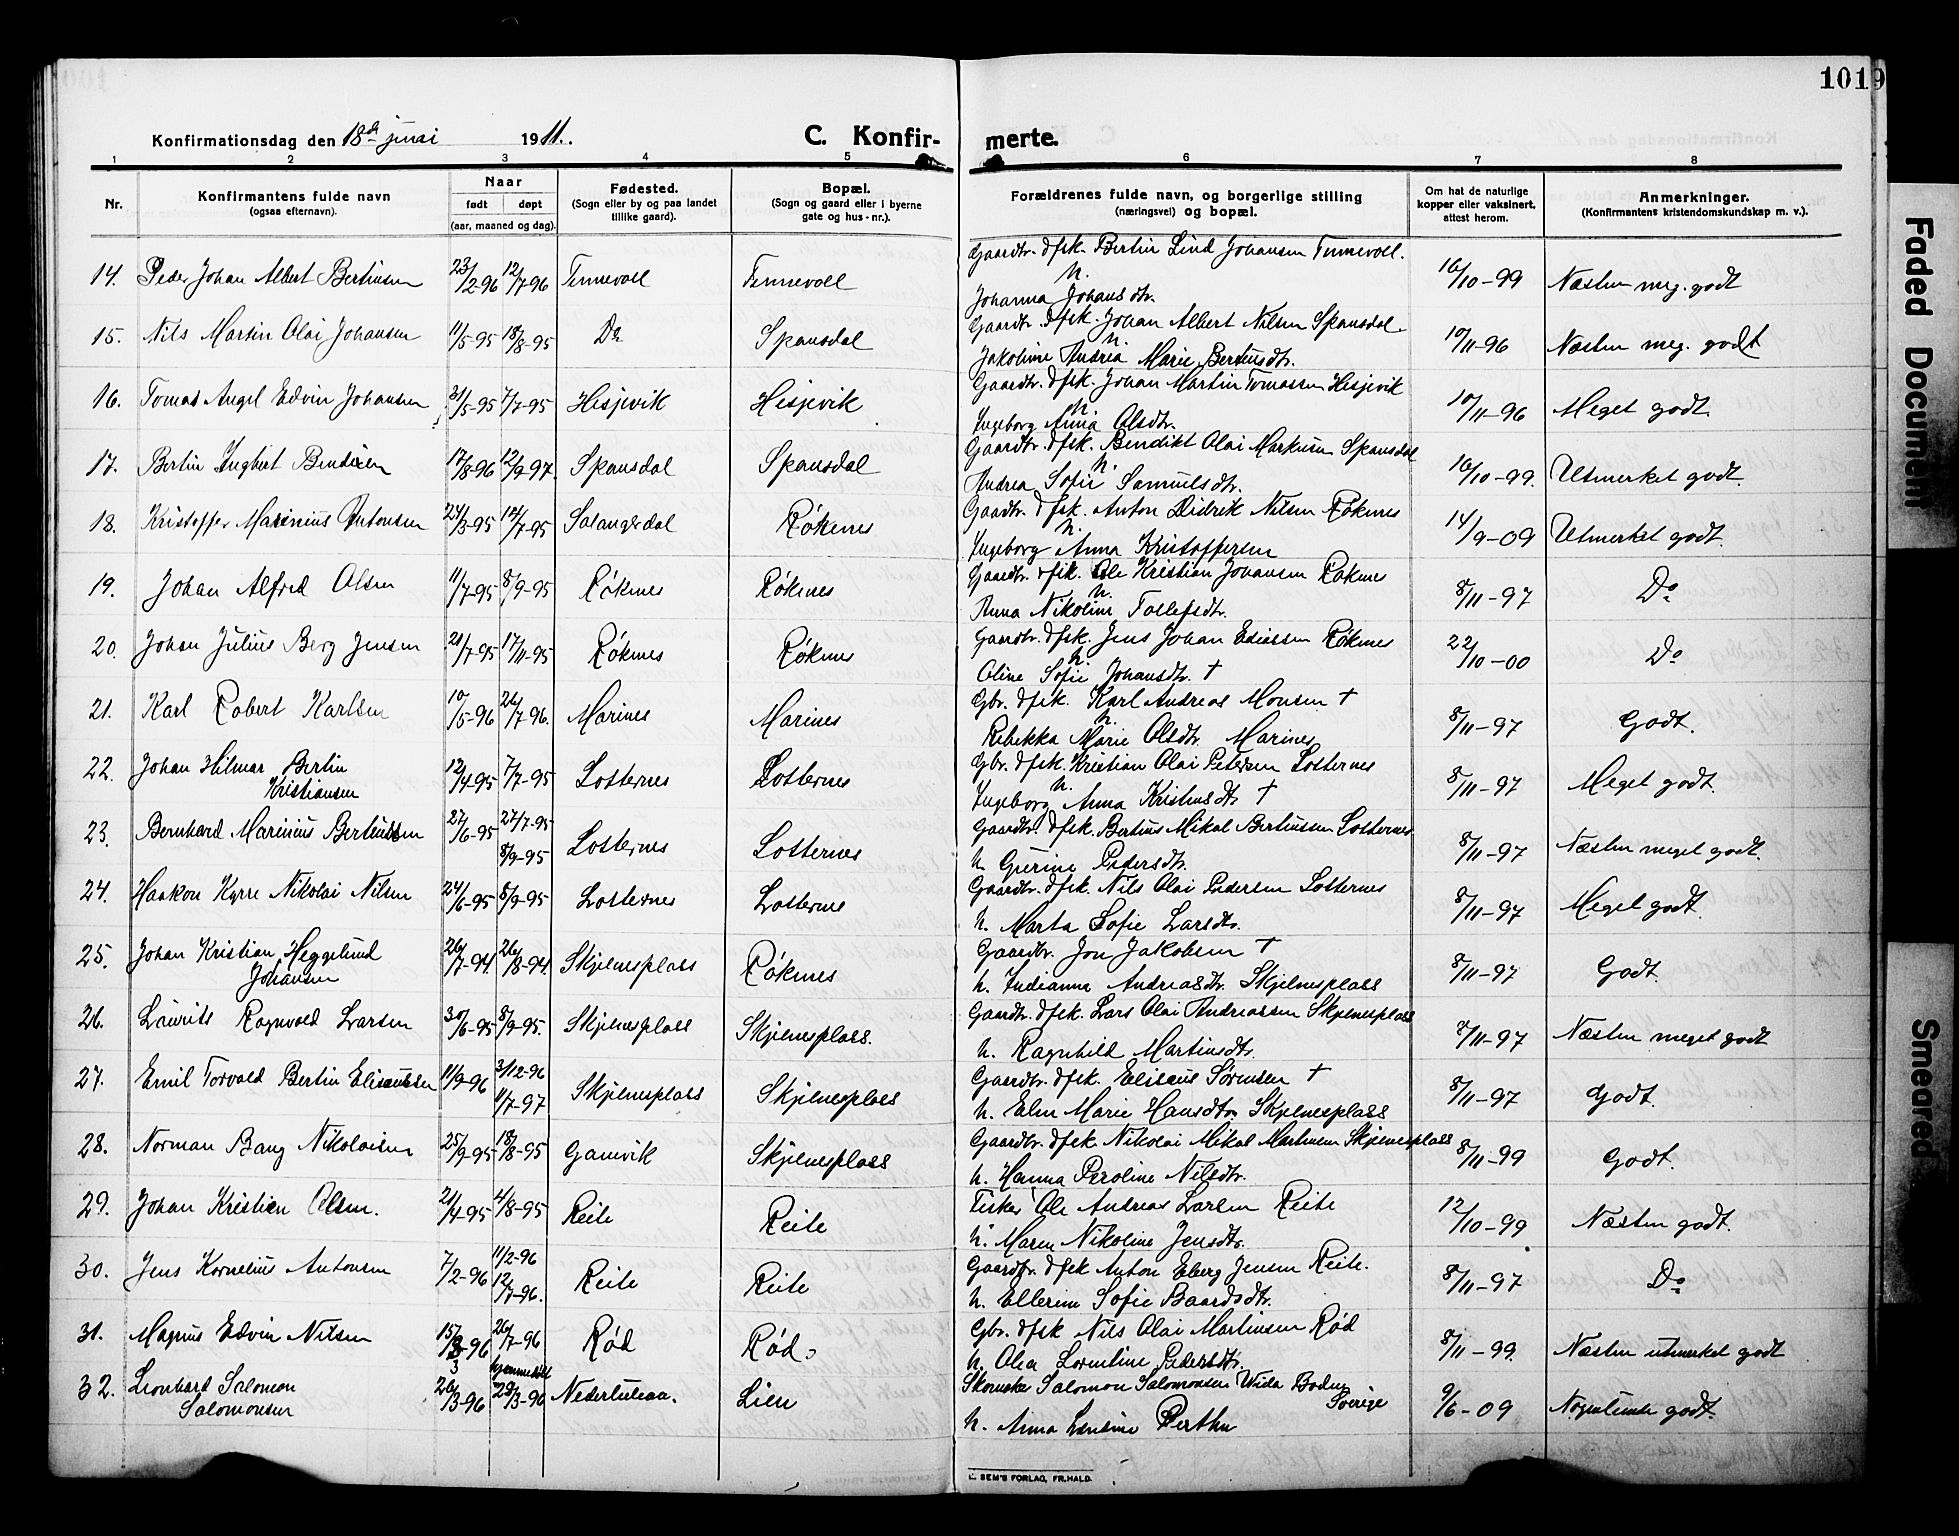 1019
Konfirmationsdag den 18de juni 1911.
C. Konfirmerte.
1 2 3 4 5 6 7 8
Nr.
Konfirmantens fulde navn
(ogsaa efternavn).
Naar
født døpt
(aar, maaned og dag).
Fødested.
(Sogn eller by og paa landet
tillike gaard).
Bopæl.
(Sogn og gaard eller i byerne
gate og hus-nr.).
Forældrenes fulde navn, og borgerlige stilling
(næringsvei) og bopæl.
Om hat de naturlige
kopper eller vaksinert,
attest herom.
Anmerkninger.
(Konfirmantens kristendomskundskap m. v.).
14. Peder Johan Albert Bertinsen 23/2-96 12/7-96 Tennevoll Tennevoll Gaardbr. dfsk. Bertin Lind Johansen Tennevoll. 16/10-99 Næsten meg. godt
h. Johanna Johansdtr.
15. Nils Martin Olai Johansen 11/5-95 18/8-95 Do Spansdal Gaardbr. dfsk. Johan Albert Nilsen Spansdal 10/11-96 Næsten meg. godt
h. Jakobine Andrea Marie Bertensdtr.
16. Tomas Angel Edvin Johansen 31/5-95 7/7-95 Hisjevik Hisjevik Gaardbr. dfsk. Johan Martin Tomassen Hisjevik 10/11-96 Meget godt.
h. Ingeborg Anna Olsdtr.
17. Bertin Ingbert Bendixen 17/8-96 12/9-97. Spansdal Spansdal Gaardbr. dfsk. Bendikt Olai Markusen Spansdal 16/10-99. Utmerket godt.
h. Andrea Sofie Samuelsdtr.
18. Kristoffer Marinius Antonsen 24/3-95 14/7-95 Salangsdal Røkenes Gaardbr. dfsk. Anton Didrik Nilsen Røkenes 14/9-09 Utmerket godt.
h. Ingeborg Anna Kristoffersen
19. Johan Alfred Olsen 11/7-95 8/9-95 Røkenes Røkenes Gaardbr. dfsk. Ole Kristian Johansen Røkenes 8/11-97 Do
h. Anna Nikoline Tollefsdtr.
20. Johan Julius Berg Jensen 21/7-95 17/11-95 Røkenes Røkenes Gaardbr. dfsk. Jens Johan Eliassen Røkenes 22/10-00 Do
h. Oline Sofie Johansdtr. †
21. Karl Robert Karlsen 10/5-96 26/7-96. Marines Marines Gbr. dfsk. Karl Andreas Monsen † 8/11-97 Godt.
h. Rebekka Marie Olsdtr. Marines
22. Johan Hilmar Bertin 12/4-95 7/7-95 Lotternes Lotternes Gbr. dfsk. Kristian Olai Petersen Lotternes 8/11-97 Meget godt.
Kristiansen h. Ingeborg Anna Kristensdtr. †
23. Bernhard Marinius Berteussen 27/6-95 27/7-95 Lotternes Lotternes Gaardbr. dfsk. Berteus Mikal Berteussen Lotternes 8/11-97 Næsten meget godt.
8/9-95 h. Gurine Pedersdtr.
24. Haakon Kyrre Nikolai Nilsen 24/6-95 8/9-95 Lotternes Lotternes Gaardbr. dfsk. Nils Olai Pedersen Lotternes 8/11-97 Meget godt.
h. Marta Sofie Larsdtr.
25. Johan Kristian Heggelund 26/7-94 26/8-94. Skjelnesplass Røkenes Gaardbr. Jon Jakobsen † 8/11-97 Godt.
Johansen h. Indianna Andreasdtr. Skjelnesplass
26. Laurits Ragnvald Larsen 30/6-95 8/9-95. Skjelnesplass Skjelnesplass. Gaardbr. dfsk. Lars Olai Andreassen Skjelnesplass 8/11-97 Næsten meget godt
h. Ragnhild Martinsdtr.
27. Emil Torvald Bertin Eliseussen 11/9-96 3/12-96 Skjelnesplass Skjelnesplass Gaardbr. dfsk. Eliseus Sørensen † 8/11-97 Godt.
11/7-97 h. Elen Marie Hansdtr. Skjelnesplass
28. Norman Bang Nikolaisen 25/9-95 18/8-95 Gamvik Skjelnesplass Gaardbr. dfsk Nikolai Mikal Martinsen Skjelnesplass 8/11-99 Godt.
h. Hanna Peroline Nilsdtr.
29. Johan Kristian Olsen. 21/4-95 4/8-95 Reite Reite Fisker Ole Andreas Larsen Reite 12/10-99 Næsten godt.
h. Maren Nikoline Jensdtr.
30. Jens Kornelius Antonsen 7/2-96 11/2-96 Reite Reite Gaardbr. dfsk Anton Eberg Jensen Reite. 8/11-97 Do
12/7-96. h. Ellerine Sofie Baardsdtr.
31. Magnus Edvin Nilsen 15/3-96 26/7-96 Rød Rød. Gbr. dfsk Nils Olai Martinsen Rød 8/11-99. Næsten utmerket godt
3 hjemmedøbt h. Olea Lorentine Pedersdtr.
32. Leonhard Salomon 26/3-96 29/3-96 Nederluleaa. Lien Skomaker Salomon Salomonsen Wida Boden 9/6-09 Nogenlunde godt.
Salomonsen Sverige
h. Anna Lovisine
E. SEM'S FORLAG, FR.HALD.
Faded Document
Smeared